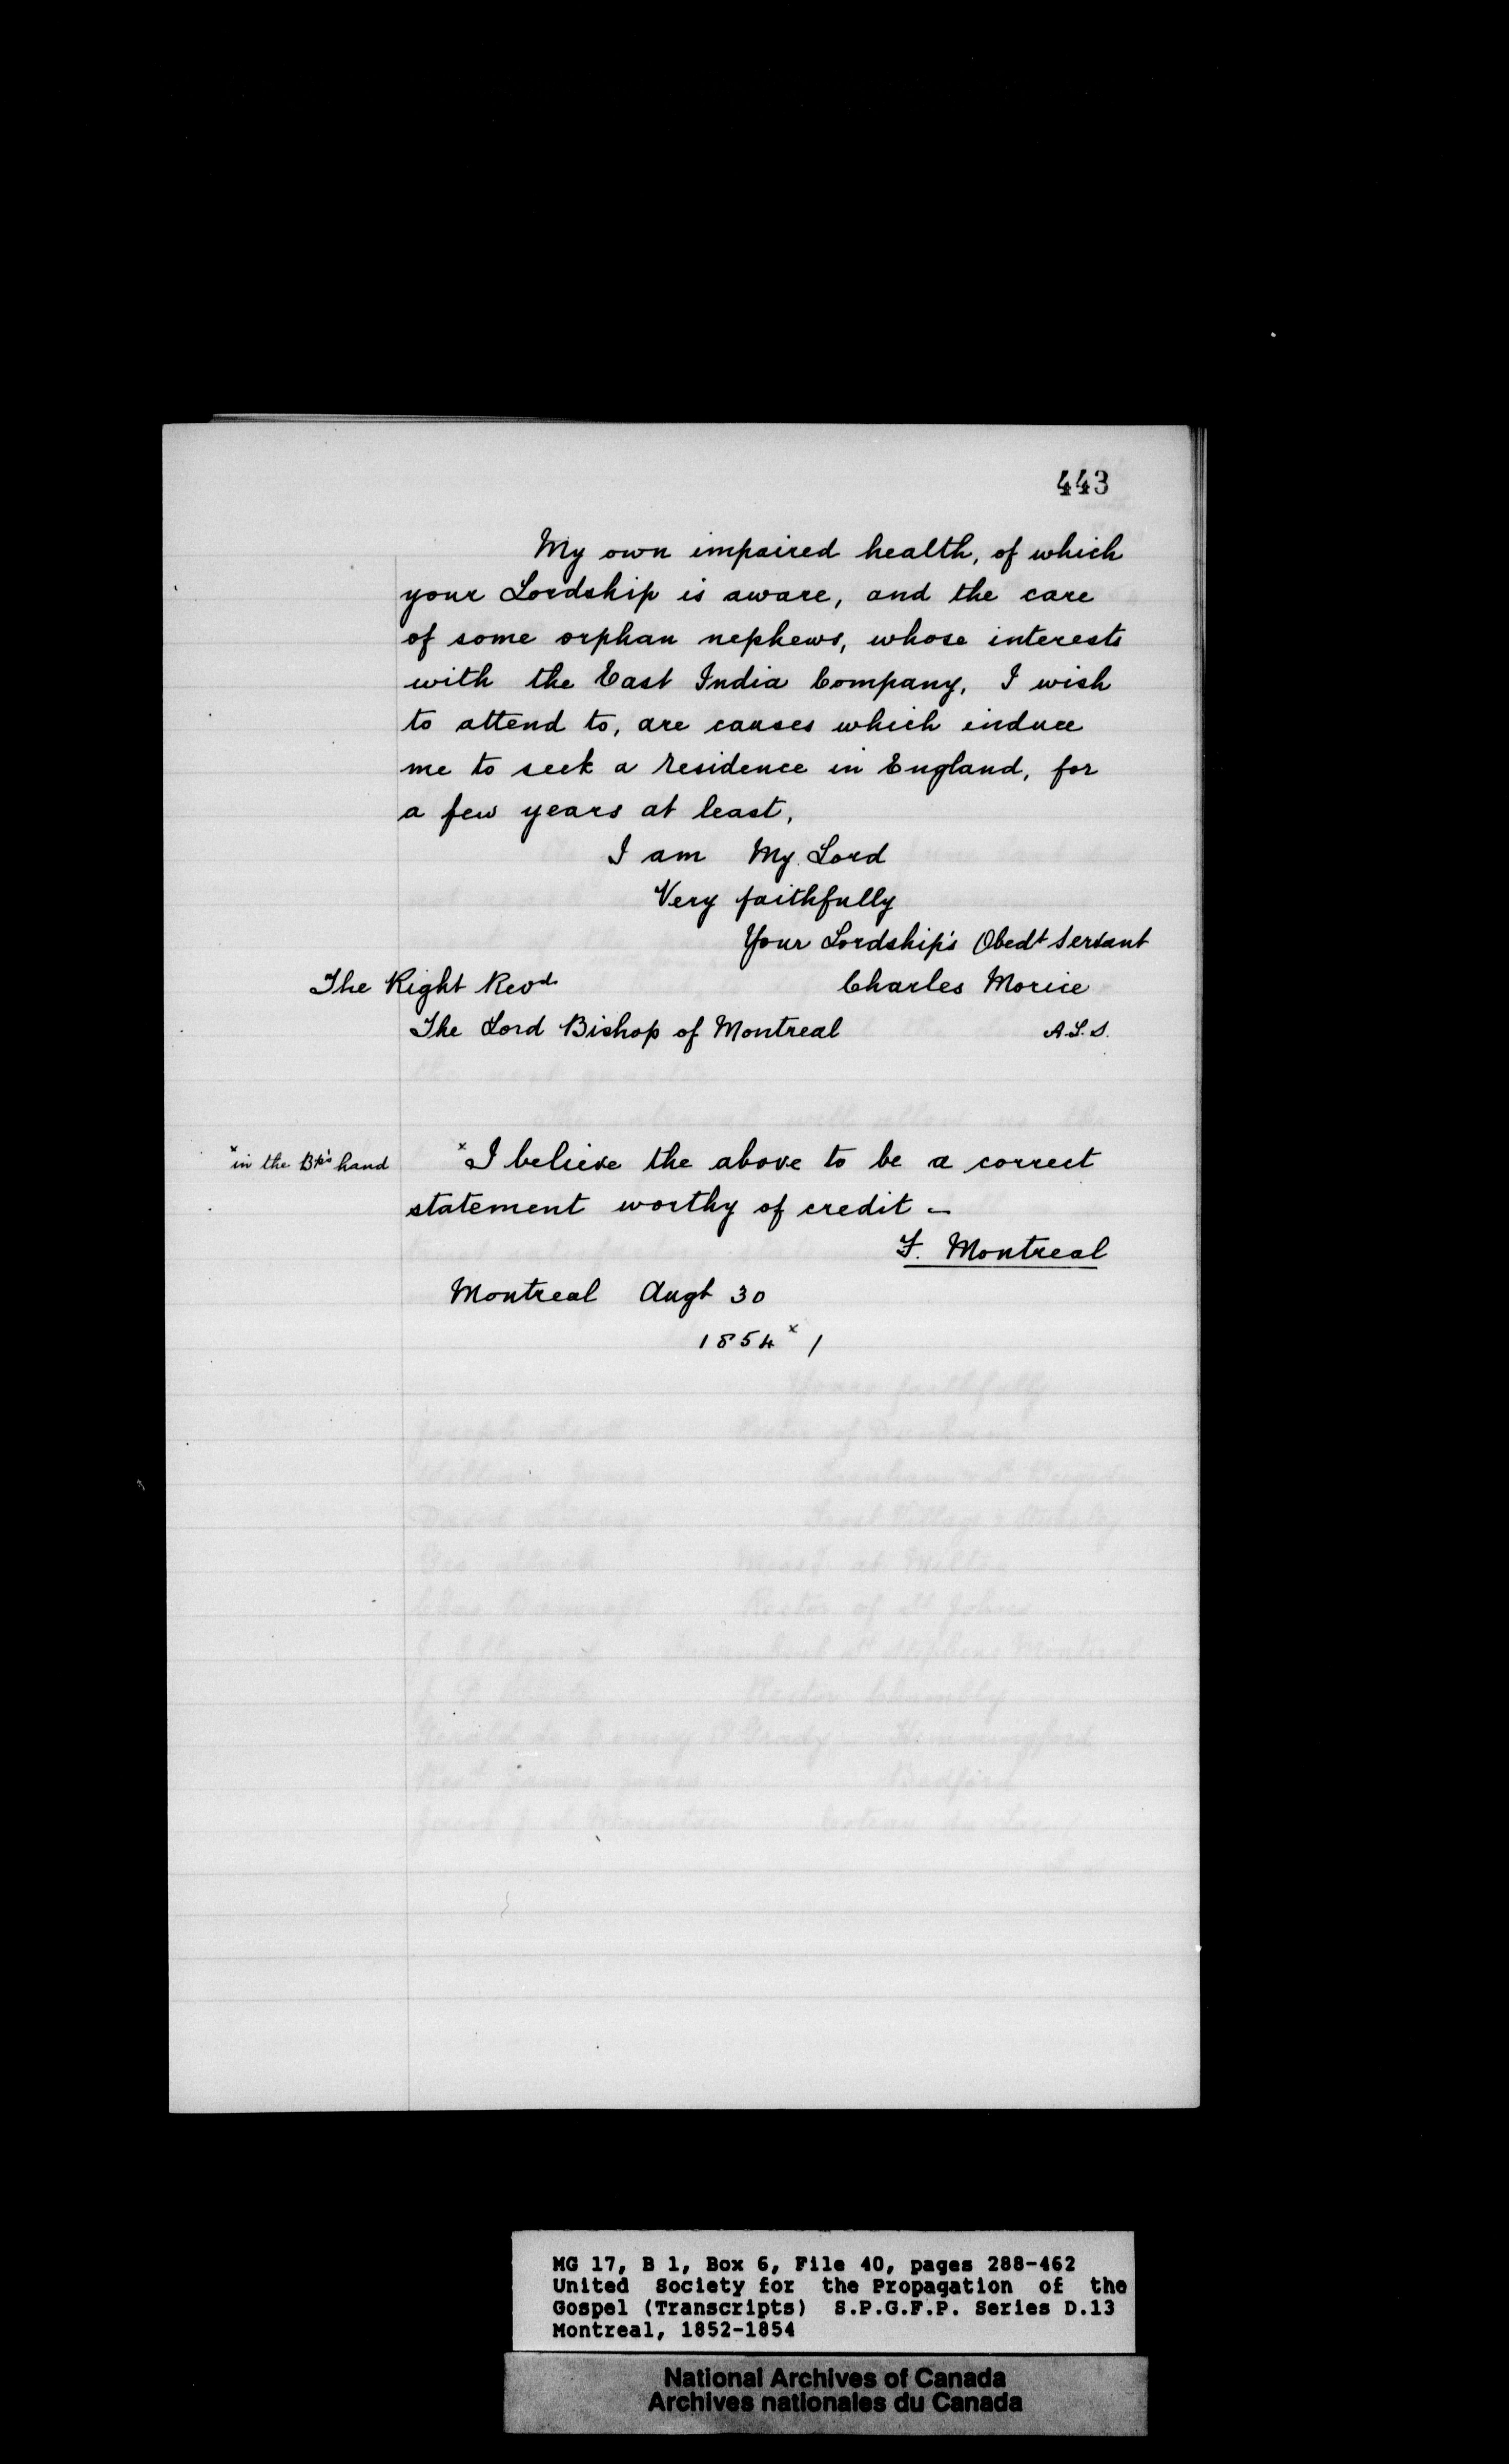 443
My own impaired health, of which
your Lordship is aware, and the care
of some orphan nephews, whose interests
with the East India Company, I wish
to attend to, are causes which induce
me to seek a residence in England, for
a few years at least,
I am My Lord
Very faithfully
Your Lordship's Obedt Servant
The Right Revd Charles Morice
The Lord Bishop of Montreal A.L.S.
x in the Bp's hand x I believe the above to be a correct
statement worthy of credit -
F. Montreal
Montreal Augt 30
1854 x /
MG 17, B 1, Box 6, File 40, pages 288-462
United Society for the Propagation of the
Gospel (Transcripts) S.P.G.F.P. Series D.13
Montreal, 1852-1854
National Archives of Canada
Archives nationales du Canada